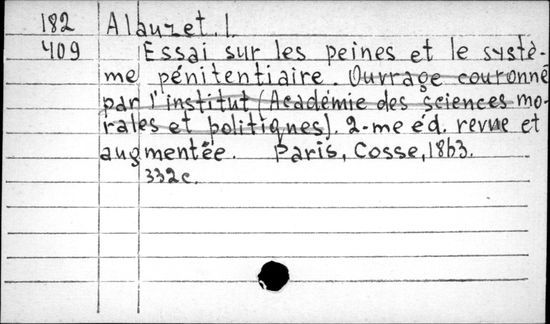 182 Alauzet. I.
409 Essai sur les peines et le systè-
me pénitentiaire. Ouvrage couronné
par l'institut (Académie des sciences mo-
rales et politiques). 2-me éd. revue et
augmentée. Paris, Cosse, 1863.
332 c.